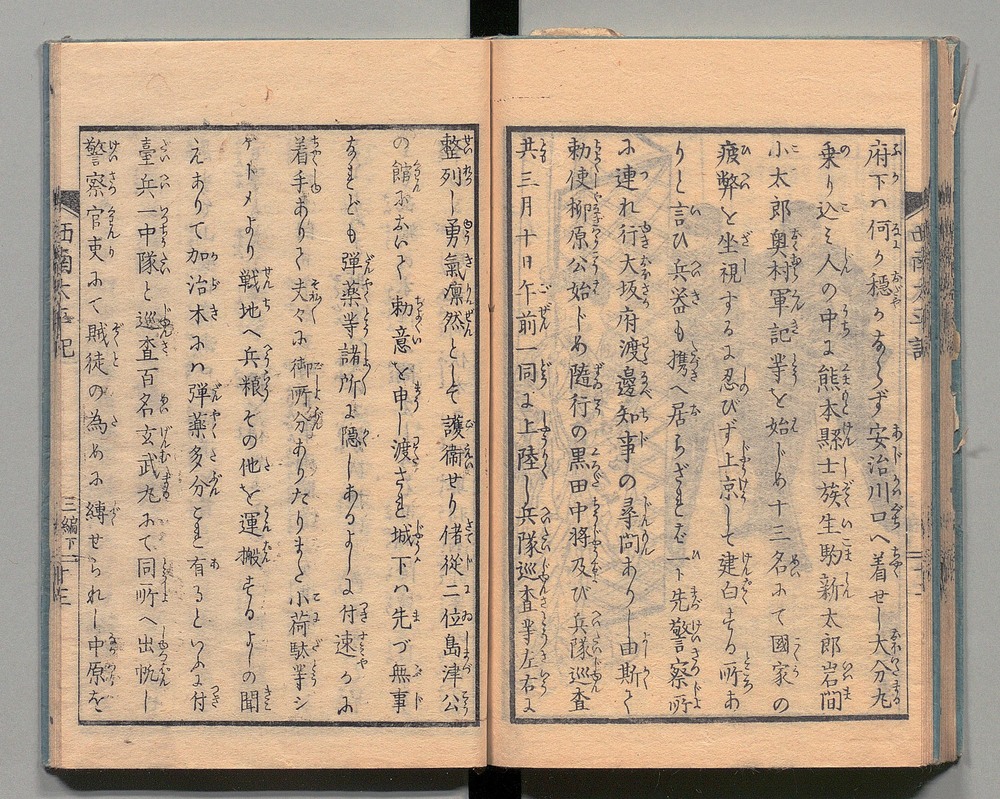 府下ハ何か穏かならず安治川口へ着せし大分丸
乗り込ミ人の中に熊本縣士族生駒新太郎岩間
小太郎奥村軍記等を始じめ十三名にて國家の
疲弊を坐視するに忍びず上京して建白する所あ
りと言ひ兵器も携へ居らざれど一ト先警察所
に連れ行大坂府渡邊知事の尋問ありし由斯て
勅使柳原公始じめ隨行の黒田中将及び兵隊巡査
共三月十日午前一同に上陸し兵隊巡査等左右に
整列し勇氣凛然として護衛せり偖從二位島津公
の館において勅意を申し渡され城下ハ先づ無事
なれども弾薬等諸所に隠しあるよしに付速かに
着手ありて夫々に御所分ありたりまた小荷駄等シ
戦地へ兵粮その他を運搬するよしの聞
えありて加治木にハ弾薬多分これ有るといふに付
臺兵一中隊と巡査百名玄武丸にて同所へ出帆し
警察官吏にて賊徒の為めに縛せられし中原を
西南太平記
三編下
十三